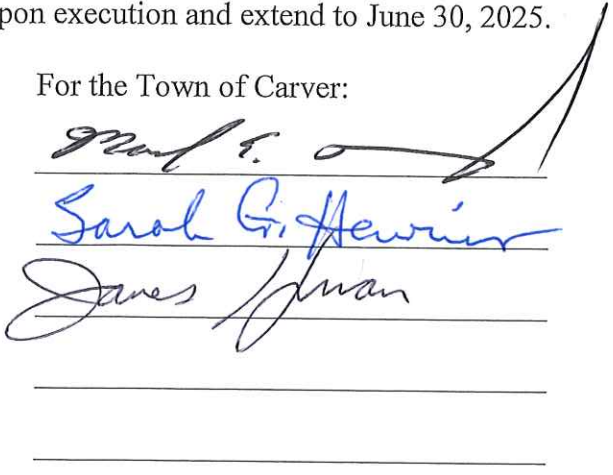 pon execution and extend to June 30, 2025.
For the Town of Carver:
E.
Sarah G.
James